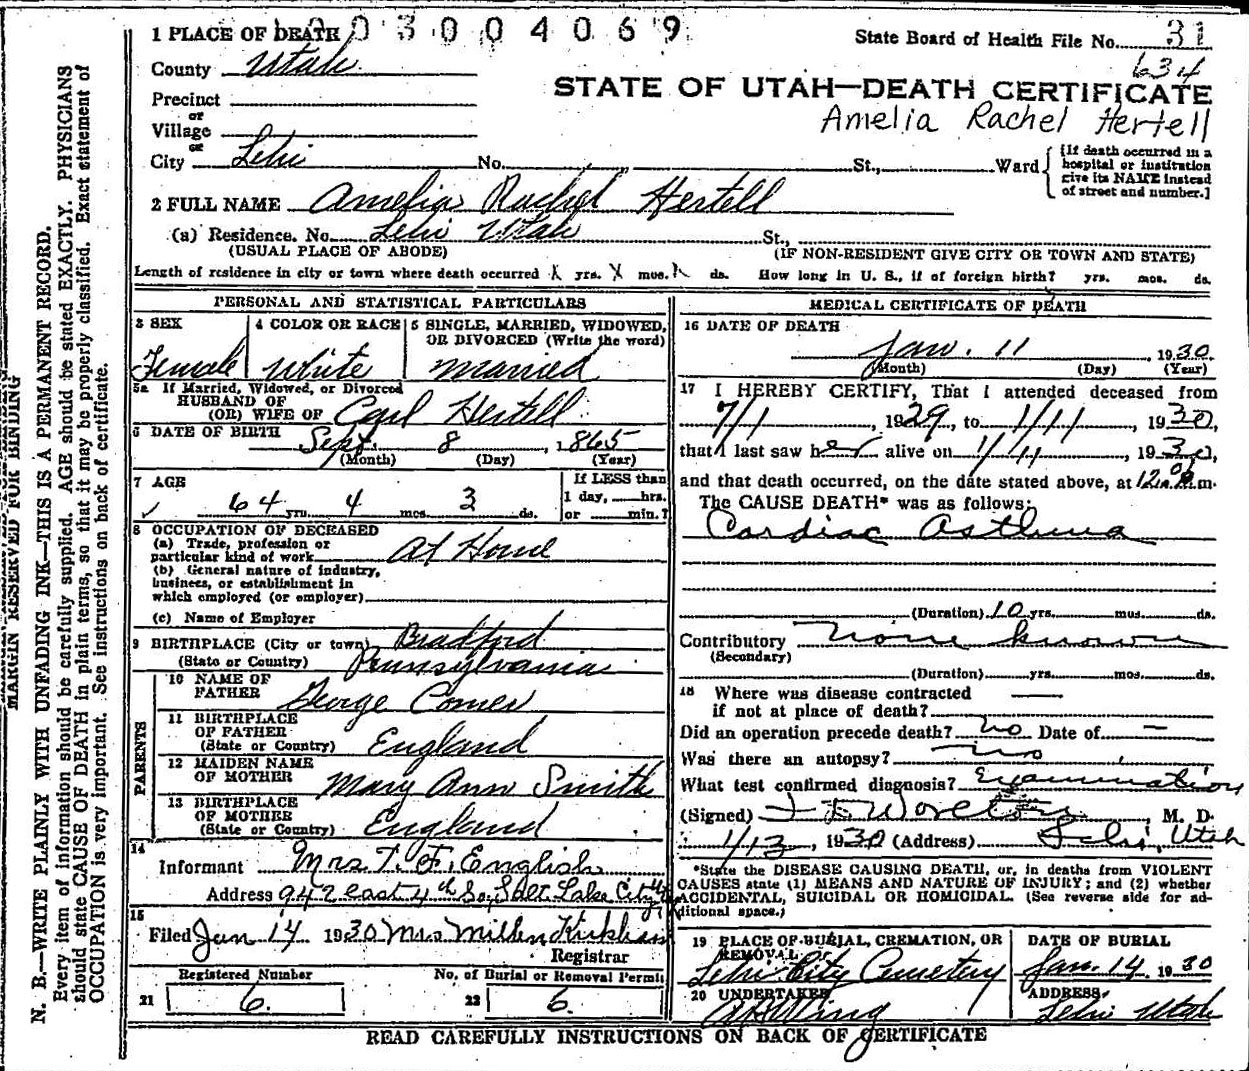 1 PLACE OF DEATH
003004069
State Board of Health File No. 31
634
County Utah
STATE OF UTAH—DEATH CERTIFICATE
Precinct
Amelia Rachel Hertell
or
Village
or
City Lehi No. St., Ward
[If death occurred in a hospital or institution give its NAME instead of street and number.]
2 FULL NAME Amelia Rachel Hertell
(a) Residence. No. Lehi Utah St.,
(USUAL PLACE OF ABODE) (IF NON-RESIDENT GIVE CITY OR TOWN AND STATE)
Length of residence in city or town where death occurred yrs. mos. ds. How long in U. S., if of foreign birth? yrs. mos. ds.
PERSONAL AND STATISTICAL PARTICULARS
3 SEX
Female
4 COLOR OR RACE
White
5 SINGLE, MARRIED, WIDOWED,
OR DIVORCED (Write the word)
married
5a If Married, Widowed, or Divorced
HUSBAND OF
(OR) WIFE OF Carl Hertell
6 DATE OF BIRTH Sept. 8, 1865
(Month) (Day) (Year)
7 AGE
64 yrs. 4 mos. 3 ds.
If LESS than
1 day, hrs.
or min.?
8 OCCUPATION OF DECEASED
(a) Trade, profession or
particular kind of work At Home
(b) General nature of industry,
business, or establishment in
which employed (or employer)
(c) Name of Employer
9 BIRTHPLACE (City or town) Bradford
(State or Country) Pennsylvania
PARENTS
10 NAME OF
FATHER George Comer
11 BIRTHPLACE
OF FATHER
(State or Country) England
12 MAIDEN NAME
OF MOTHER Mary Ann Smith
13 BIRTHPLACE
OF MOTHER
(State or Country) England
14
Informant Mrs T. F. English
Address 942 East 4th So, Salt Lake City
15
Filed Jan 14 1930 Mrs Kirkham
Registrar
Registered Number
21 6.
No. of Burial or Removal Permit
22 6.
MEDICAL CERTIFICATE OF DEATH
16 DATE OF DEATH
Jan. 11, 1930.
(Month) (Day) (Year)
17 I HEREBY CERTIFY, That I attended deceased from
7/1, 1929, to 1/11, 1930,
that I last saw her alive on 1/11, 1930,
and that death occurred, on the date stated above, at m.
The CAUSE DEATH* was as follows:
Cardiac Asthma
(Duration) 10 yrs. mos. ds.
Contributory None known
(Secondary)
(Duration) yrs. mos. ds.
18 Where was disease contracted
if not at place of death?
Did an operation precede death? no Date of —
Was there an autopsy? no
What test confirmed diagnosis? Examination
(Signed) M. D.
1/13, 1930 (Address) Lehi, Utah
*State the DISEASE CAUSING DEATH, or, in deaths from VIOLENT
CAUSES state (1) MEANS AND NATURE OF INJURY; and (2) whether
ACCIDENTAL, SUICIDAL OR HOMICIDAL. (See reverse side for ad-
ditional space.)
19 PLACE OF BURIAL, CREMATION, OR
REMOVAL OF
Lehi City Cemetery
DATE OF BURIAL
Jan. 14 1930
20 UNDERTAKER
A H Wing
ADDRESS
Lehi Utah
READ CAREFULLY INSTRUCTIONS ON BACK OF CERTIFICATE
MARGIN RESERVED FOR BINDING
N. B.—WRITE PLAINLY WITH UNFADING INK—THIS IS A PERMANENT RECORD.
Every item of information should be carefully supplied. AGE should be stated EXACTLY. PHYSICIANS
should state CAUSE OF DEATH in plain terms, so that it may be properly classified. Exact statement of
OCCUPATION is very important. See instructions on back of certificate.